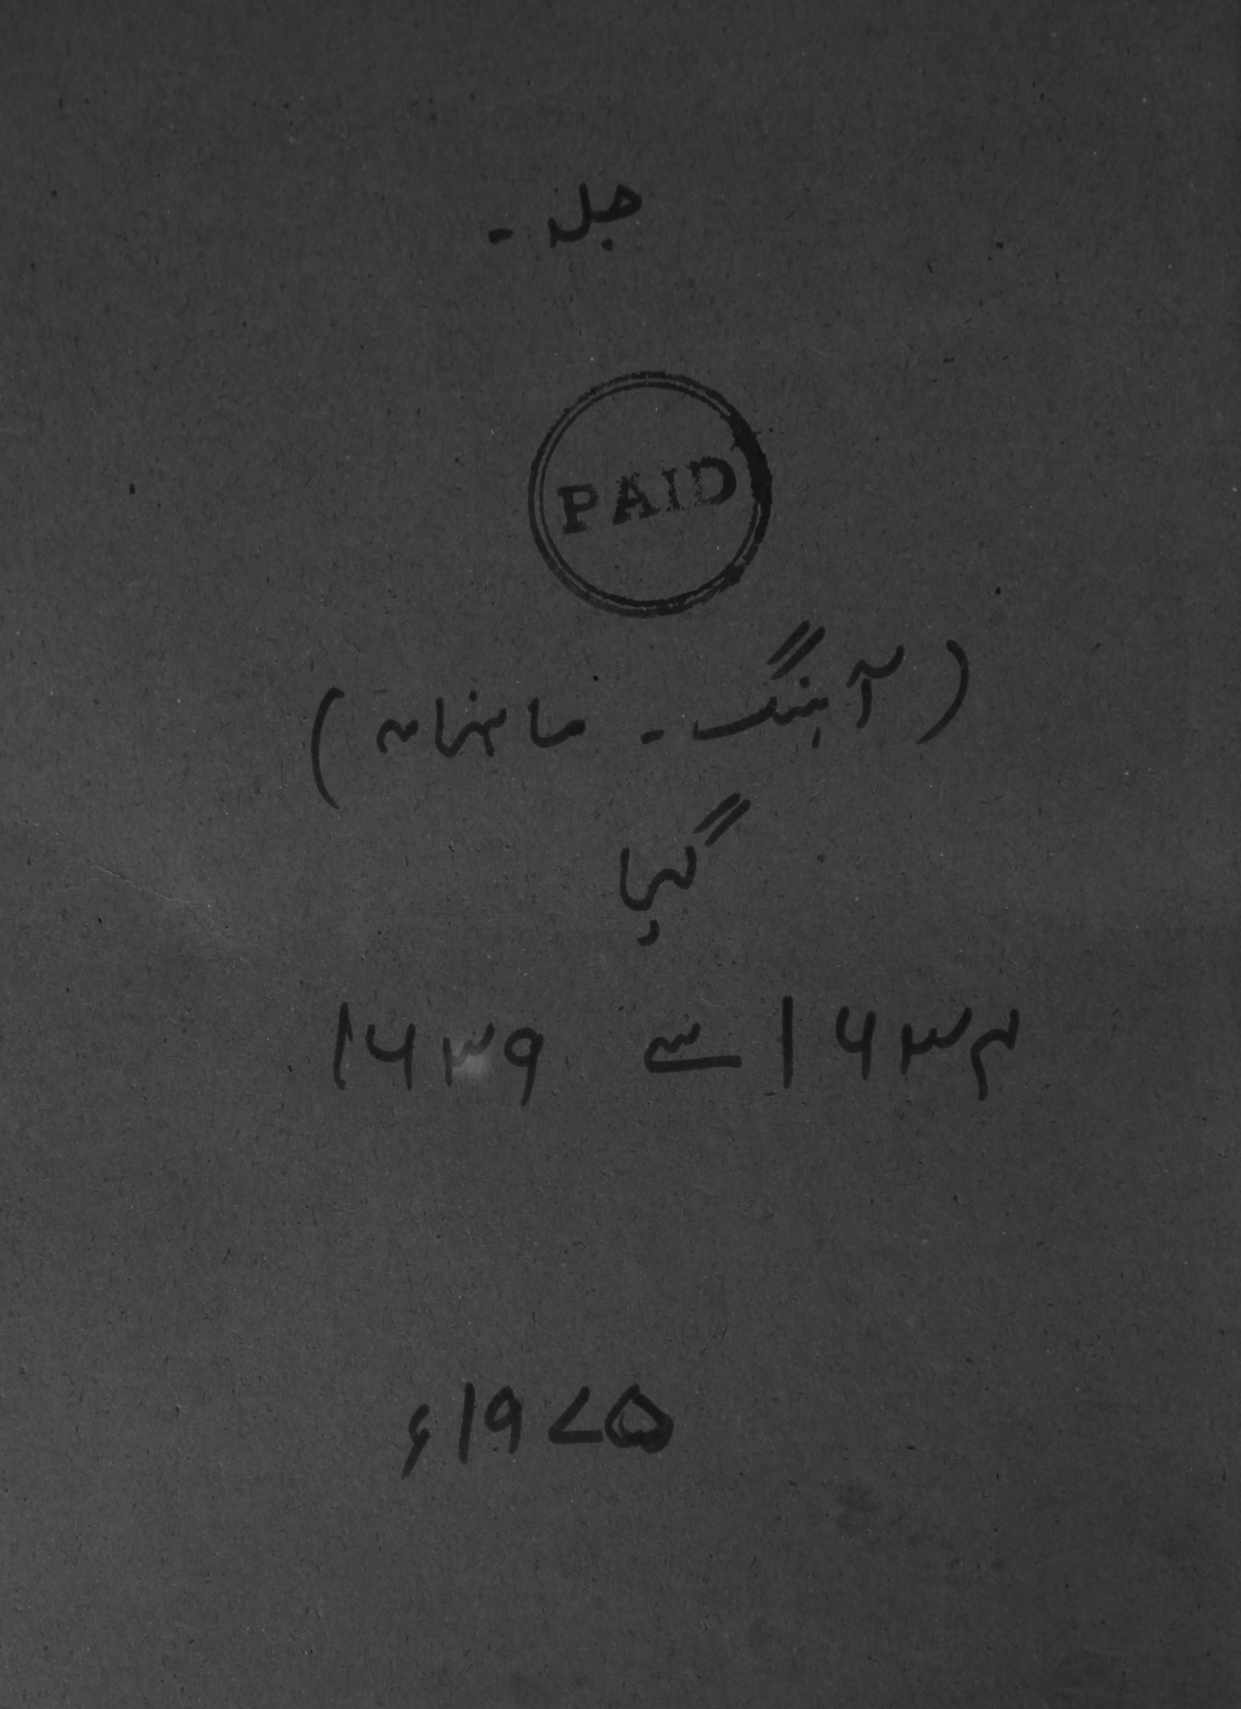 جلد ۔
PAID
( آہنگ ۔ ماہنامہ )
گیا
۱۶۳۴ سے ۱۶۳۹
۱۹۷۵ء